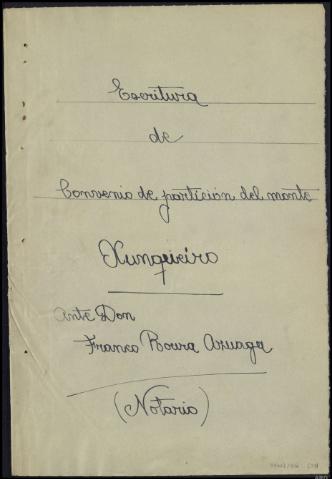 Escritura
de
Convenio de partición del monte
Xunqueiro
Ante Don
Franco Roura Azuaga
(Notario)